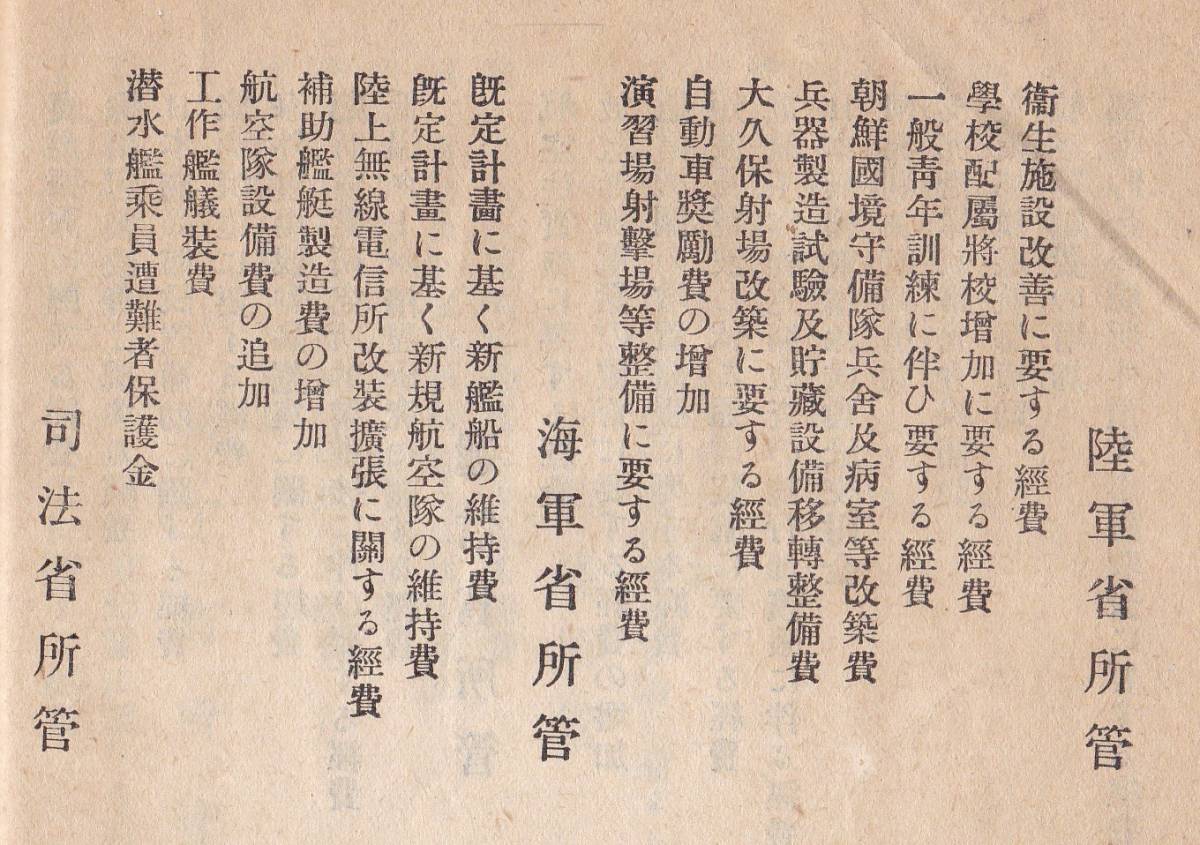 陸軍省所管
衞生施設改善に要する經費
學校配屬將校增加に要する經費
一般靑年訓練に伴ひ要する經費
朝鮮國境守備隊兵舍及病室等改築費
兵器製造試驗及貯藏設備移轉整備費
大久保射場改築に要する經費
自動車奬勵費の增加
演習場射擊場等整備に要する經費
海軍省所管
旣定計畫に基く新艦船の維持費
旣定計畫に基く新規航空隊の維持費
陸上無線電信所改裝擴張に關する經費
補助艦艇製造費の增加
航空隊設備費の追加
工作艦艤裝費
潜水艦乘員遭難者保護金
司法省所管